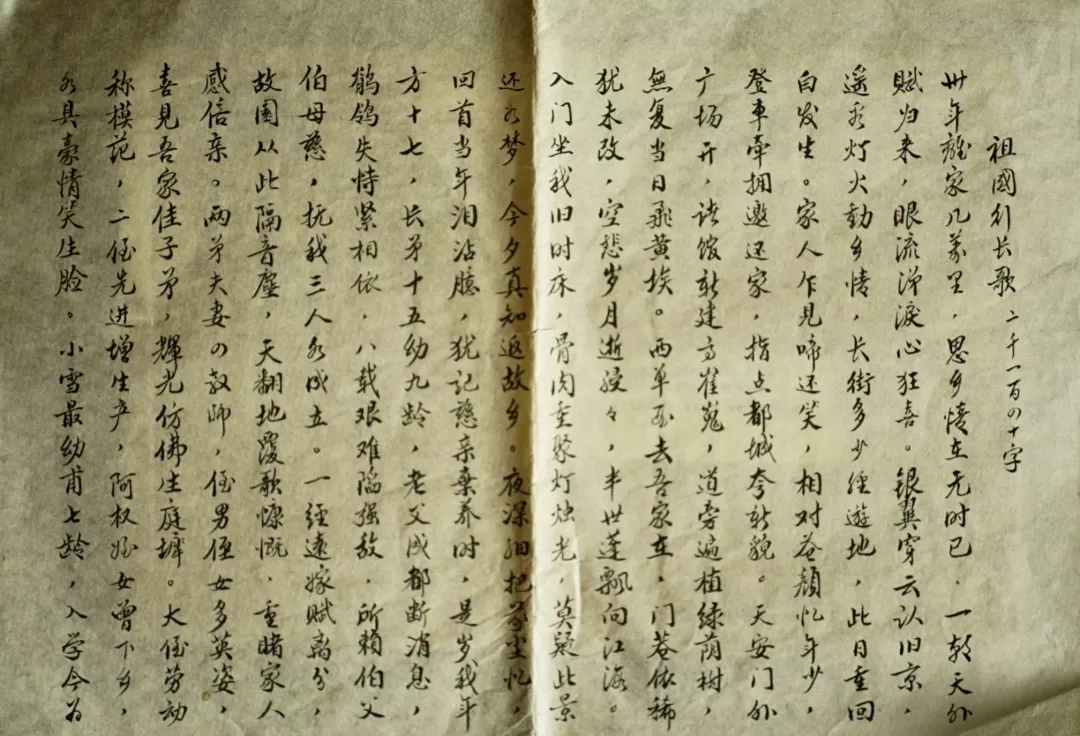 祖國行长歌 二千一百四十字
卅年離家几萬里，思乡情在无时已，一朝天外
赋归来，眼流涕淚心狂喜。银翼穿云认旧京，
遥看灯火動乡情，长街多少經遊地，此日重回
白发生。家人乍見啼还笑，相对苍颜忆年少，
登車牵拥邀还家，指点都城夸新貌。天安门外
广场开，诸馆新建高崔嵬，道旁遍植绿荫树，
無复当日飛黄埃。西单西去吾家在，门巷依稀
犹未改，空悲岁月逝骎々，半世蓬飄向江海。
入门坐我旧时床，骨肉重聚灯烛光，莫疑此景
还如梦，今夕真知返故乡。夜深细把前尘忆，
回首当年泪沾臆，犹记慈亲棄养时，是岁我年
方十七，长弟十五幼九龄，老父成都断消息，
鹡鸰失恃紧相依，八载艰难陷强敌，所赖伯父
伯母慈，抚我三人各成立。一經遠嫁赋离分，
故園从此隔音塵，天翻地覆歌慷慨，重睹家人
感倍亲。两弟夫妻四教师，侄男侄女多英姿，
喜見吾家佳子弟，輝光仿佛生庭墀。大侄劳动
称模范，二侄先进增生产，阿权姪女曾下乡，
各具豪情笑生脸。小雪最幼甫七龄，入学今为